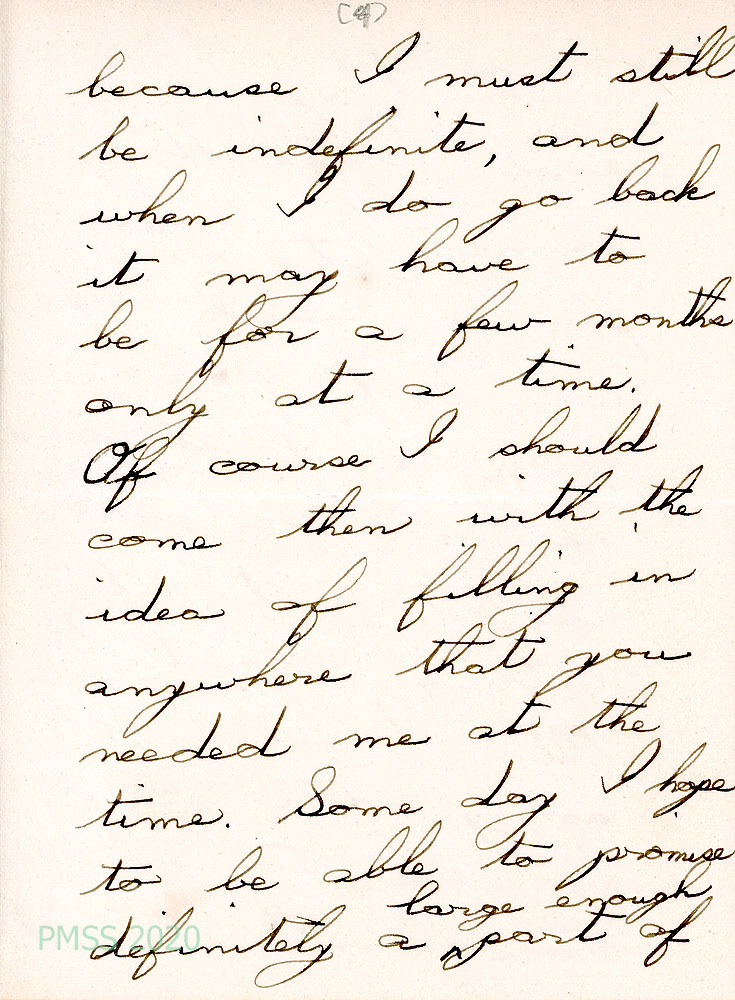 (4)
because I must still
be indefinite, and
when I do go back
it may have to
be for a few months
only at a time.
Of course I should
come then with the
idea of filling in
anywhere that you
needed me at the
time. Some day I hope
to be able to promise
large enough
definitely a ^ part of
PMSS 2020